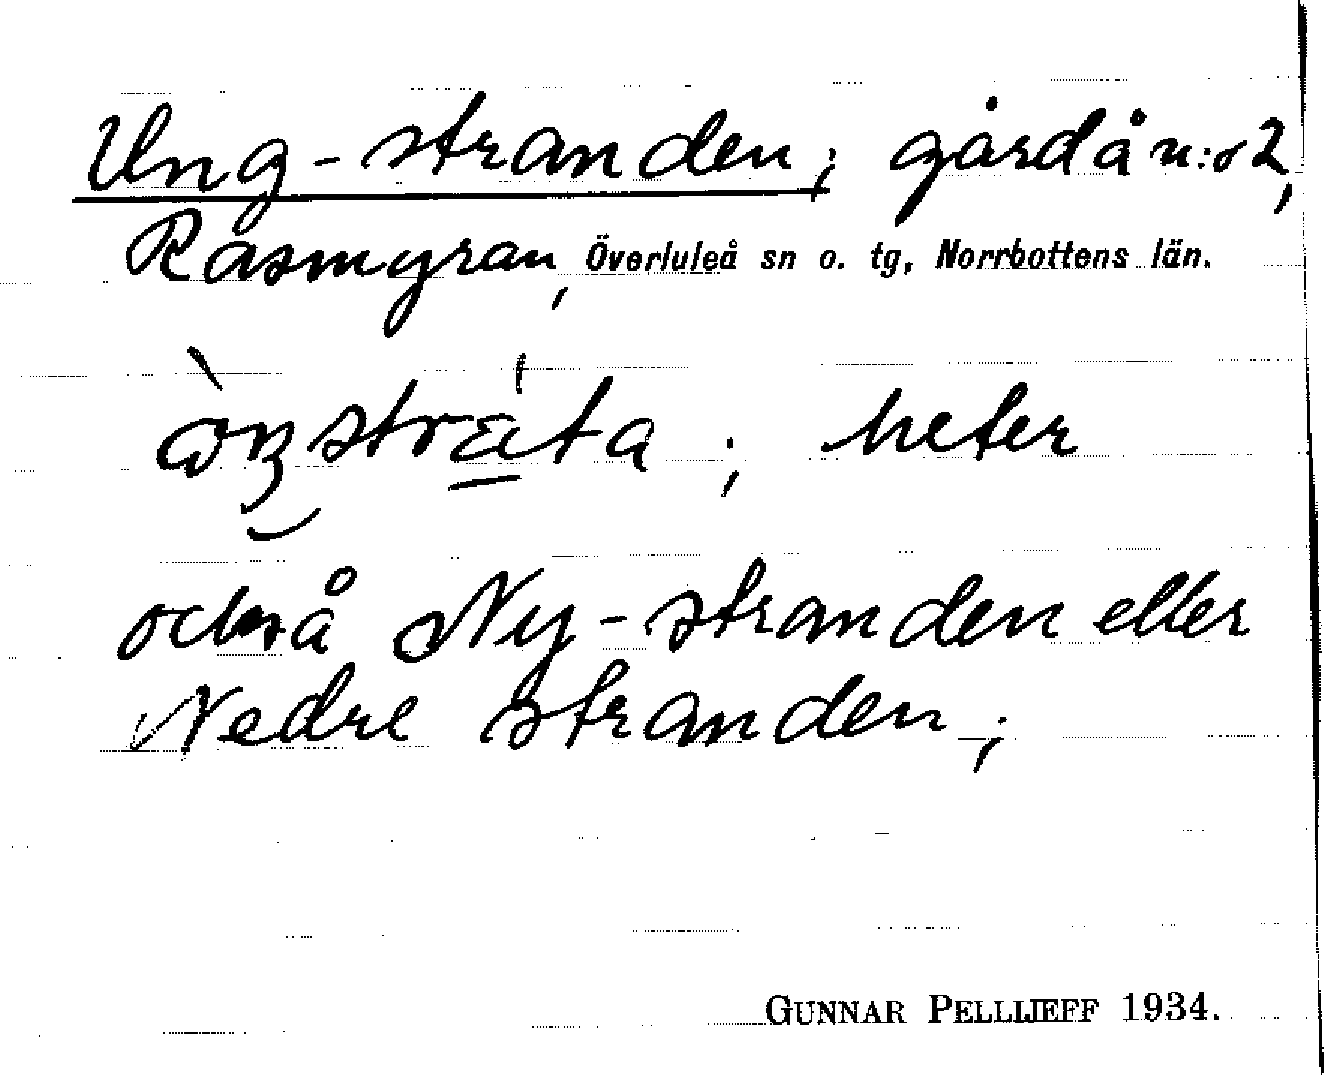 Ung-stranden; gård å n:o 2,
Råsmyran, Överluleå sn o. tg, Norrbottens län.
heter
också Ny-stranden eller
Nedre stranden;
GUNNAR PELLIJEFF 1934.